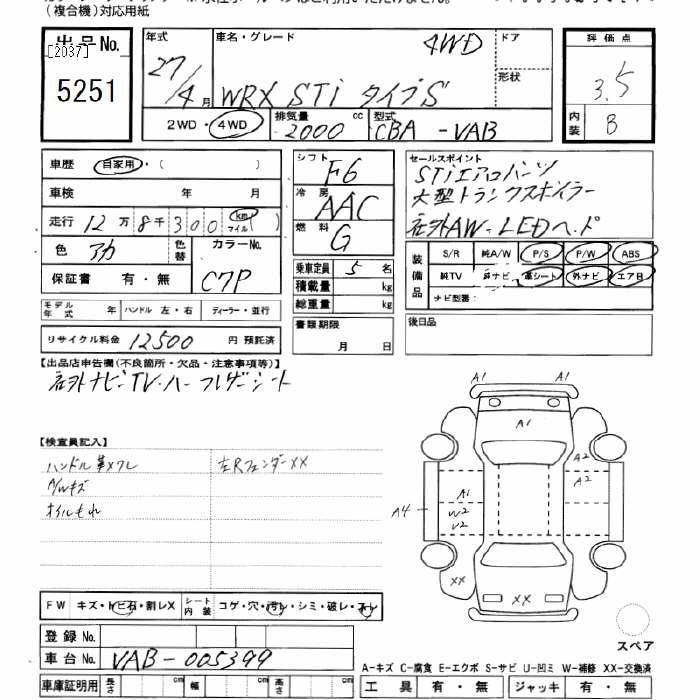 (複合機)対応用紙
出品No. [2037] 5251
年式 27/4月
車名・グレード 4WD WRX STi タイプS
ドア
形状
2WD・4WD
排気量 2000 cc
型式 CBA-VAB
評価点 3.5
内装 B
車歴 自家用・( )
車検 年 月
走行 12万8千300 (km マイル)
色 アカ 色替 カラーNo. C7P
保証書 有・無
モデル年式 年 ハンドル 左・右 ディーラー・並行
リサイクル料金 12500 円 預託済
シフト F6
冷房 AAC
燃料 G
乗車定員 5 名
積載量 kg
総重量 kg
書類期限
月 日
セールスポイント
STiエアロバンツ
大型トランクスポイラー
社外AW-LEDヘッド
装備品 S/R 純A/W P/S P/W ABS
純TV 純ナビ 革シート 外ナビ エアB
ナビ型番:
後日品
【出品店申告欄(不良箇所・欠品・注意事項等)】
社外ナビTV・ハーフレザーシート
【検査員記入】
ハンドル革スレ 左Rフェンダー XX
A/Wキズ
オイルもれ
A1 A1
A1
A2
A1 A2
A4 W2
U2
XX XX
FW キズ・トビ石・割レX シート内装 コゲ・穴・汚レ・シミ・破レ・スレ
登録No.
車台No. VAB-005399
車庫証明用 長さ cm 幅 cm 高さ cm
スペア
A-キズ C-腐食 E-エクボ S-サビ U-凹ミ W-補修 XX-交換済
工具 有・無 ジャッキ 有・無